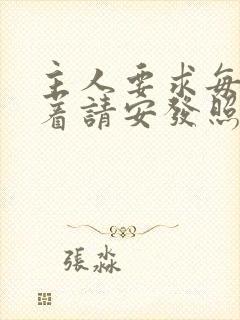 主人要求每
着請安發照
張淼